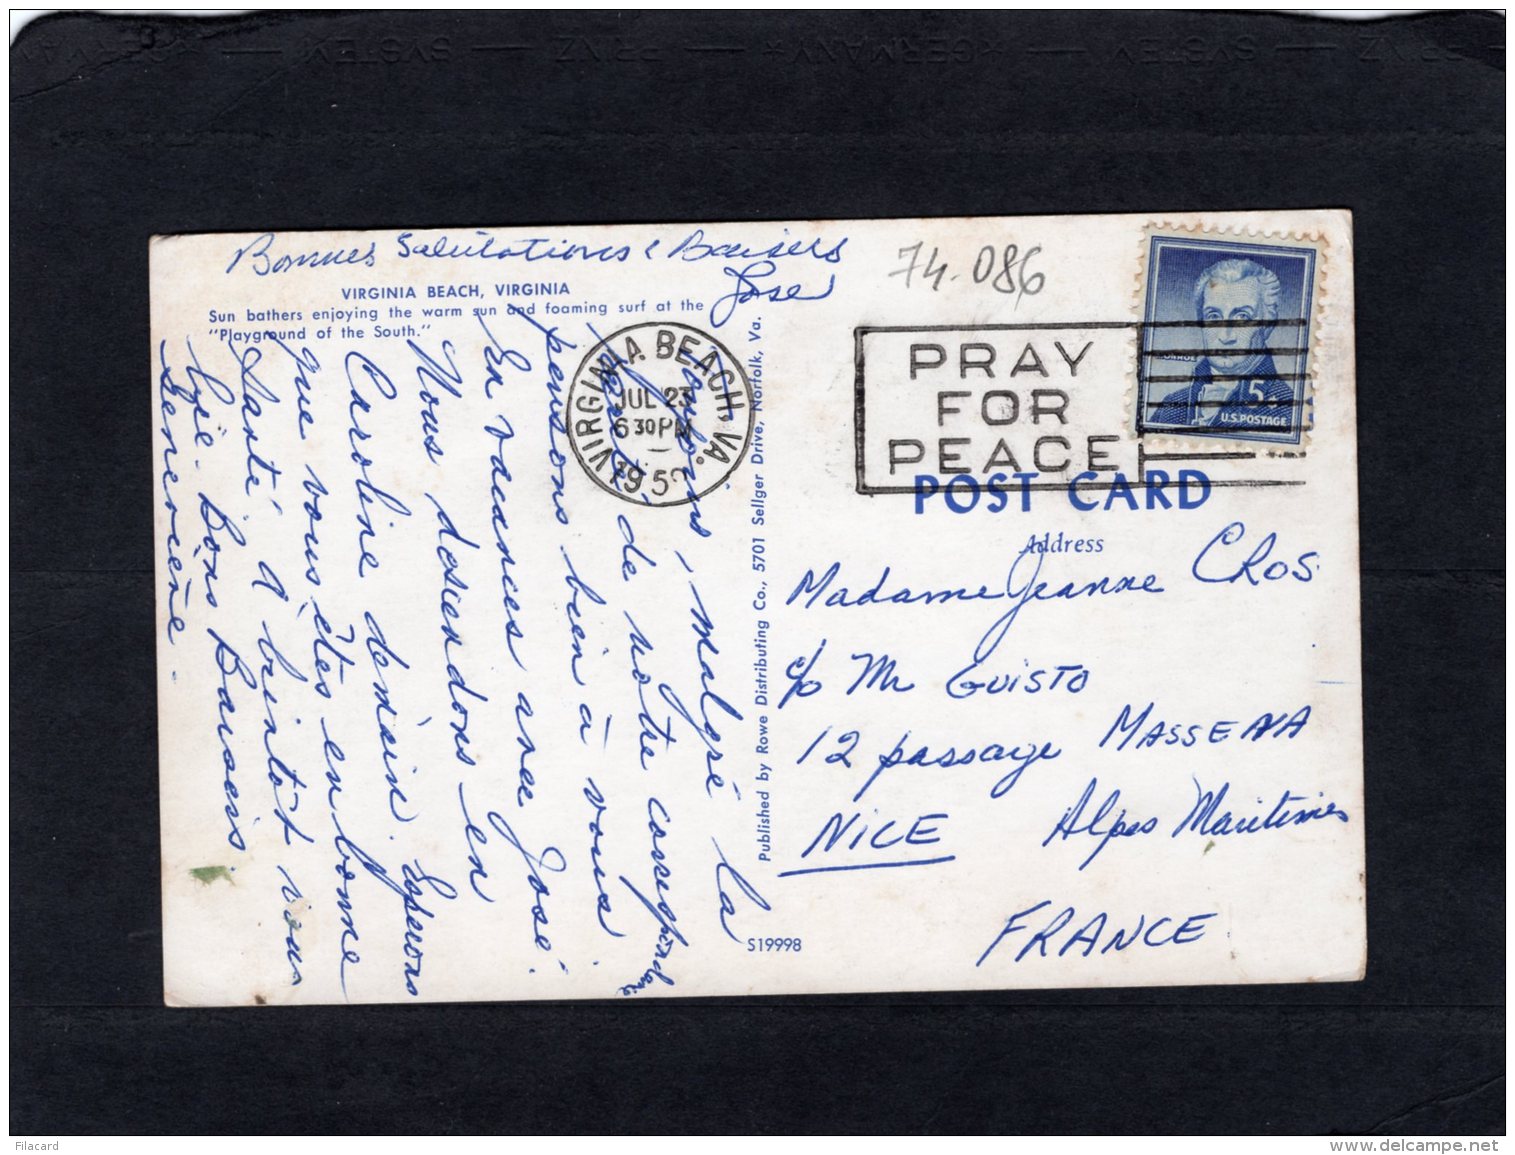 SYSTEM — PRINZ — ★GERMANY★ — SYSTEM — PRINZ
Bonnes Salutations & Baisers
José
74.086
VIRGINIA BEACH, VIRGINIA
Sun bathers enjoying the warm sun and foaming surf at the
"Playground of the South."
VIRGINIA BEACH, VA.
JUL 23
6 30 PM
195
PRAY
FOR
PEACE
MONROE
5¢
U.S. POSTAGE
POST CARD
Address
Madame Jeanne CROS
c/o Mr GUISTO
12 passage MASSENA
NICE Alpes Maritimes
FRANCE
Toujours, malgré la
de notre correspondance
pensons bien à vous
En vacances avec José.
Nous descendons en
Caroline demain. Espérons
que vous êtes en bonne
Santé à bientôt vous
lire. Bons Baisers.
Geneviève.
Published by Rowe Distributing Co., 5701 Sellger Drive, Norfolk, Va.
S19998
Filacard
www.delcampe.net